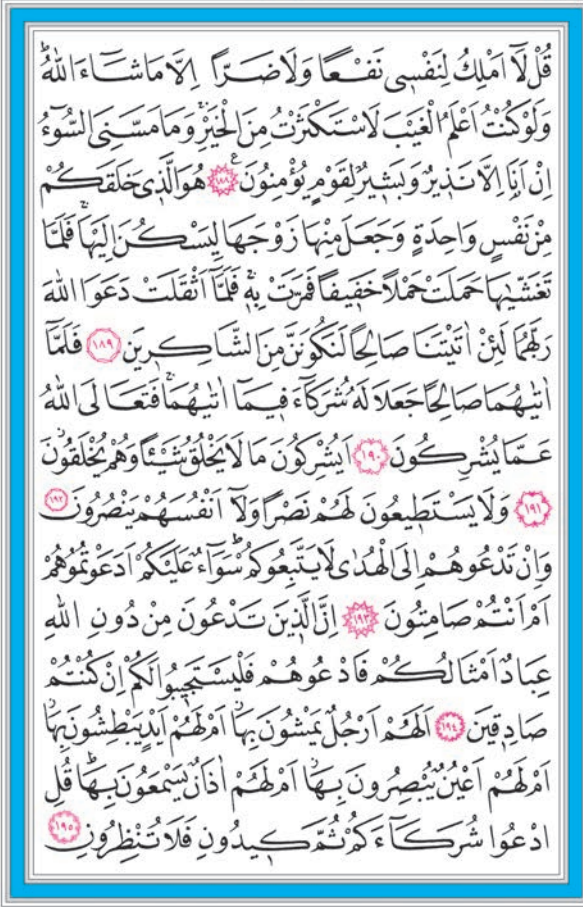 قُلْ لَٓا اَمْلِكُ لِنَفْسٖى نَفْعًا وَلَا ضَرًّا اِلَّا مَا شَٓاءَ اللّٰهُؕ
وَلَوْ كُنْتُ اَعْلَمُ الْغَيْبَ لَاسْتَكْثَرْتُ مِنَ الْخَيْرِۚ وَمَا مَسَّنِىَ السُّٓوءُ
اِنْ اَنَا۬ اِلَّا نَذٖيرٌ وَبَشٖيرٌ لِقَوْمٍ يُؤْمِنُونَࣖ ﴿١٨٨﴾ هُوَ الَّذٖى خَلَقَكُمْ
مِنْ نَفْسٍ وَاحِدَةٍ وَجَعَلَ مِنْهَا زَوْجَهَا لِيَسْكُنَ اِلَيْهَاۚ فَلَمَّا
تَغَشّٰيهَا حَمَلَتْ حَمْلًا خَفٖيفًا فَمَرَّتْ بِهٖۚ فَلَمَّٓا اَثْقَلَتْ دَعَوَا اللّٰهَ
رَبَّهُمَا لَئِنْ اٰتَيْتَنَا صَالِحًا لَنَكُونَنَّ مِنَ الشَّاكِرٖينَ ﴿١٨٩﴾ فَلَمَّٓا
اٰتٰيهُمَا صَالِحًا جَعَلَا لَهُ شُرَكَٓاءَ فٖيمَٓا اٰتٰيهُمَاۚ فَتَعَالَى اللّٰهُ
عَمَّا يُشْرِكُونَ ﴿١٩٠﴾ اَيُشْرِكُونَ مَا لَا يَخْلُقُ شَيْـًٔا وَهُمْ يُخْلَقُونَ
﴿١٩١﴾ وَلَا يَسْتَطٖيعُونَ لَهُمْ نَصْرًا وَلَٓا اَنْفُسَهُمْ يَنْصُرُونَ ﴿١٩٢﴾
وَاِنْ تَدْعُوهُمْ اِلَى الْهُدٰى لَا يَتَّبِعُوكُمْؕ سَوَٓاءٌ عَلَيْكُمْ اَدَعَوْتُمُوهُمْ
اَمْ اَنْتُمْ صَامِتُونَ ﴿١٩٣﴾ اِنَّ الَّذٖينَ تَدْعُونَ مِنْ دُونِ اللّٰهِ
عِبَادٌ اَمْثَالُكُمْ فَادْعُوهُمْ فَلْيَسْتَجٖيبُوا لَكُمْ اِنْ كُنْتُمْ
صَادِقٖينَ ﴿١٩٤﴾ اَلَهُمْ اَرْجُلٌ يَمْشُونَ بِهَاؗ اَمْ لَهُمْ اَيْدٍ يَبْطِشُونَ بِهَاؗ
اَمْ لَهُمْ اَعْيُنٌ يُبْصِرُونَ بِهَاؗ اَمْ لَهُمْ اٰذَانٌ يَسْمَعُونَ بِهَاؕ قُلِ
ادْعُوا شُرَكَٓاءَكُمْ ثُمَّ كٖيدُونِ فَلَا تُنْظِرُونِ ﴿١٩٥﴾